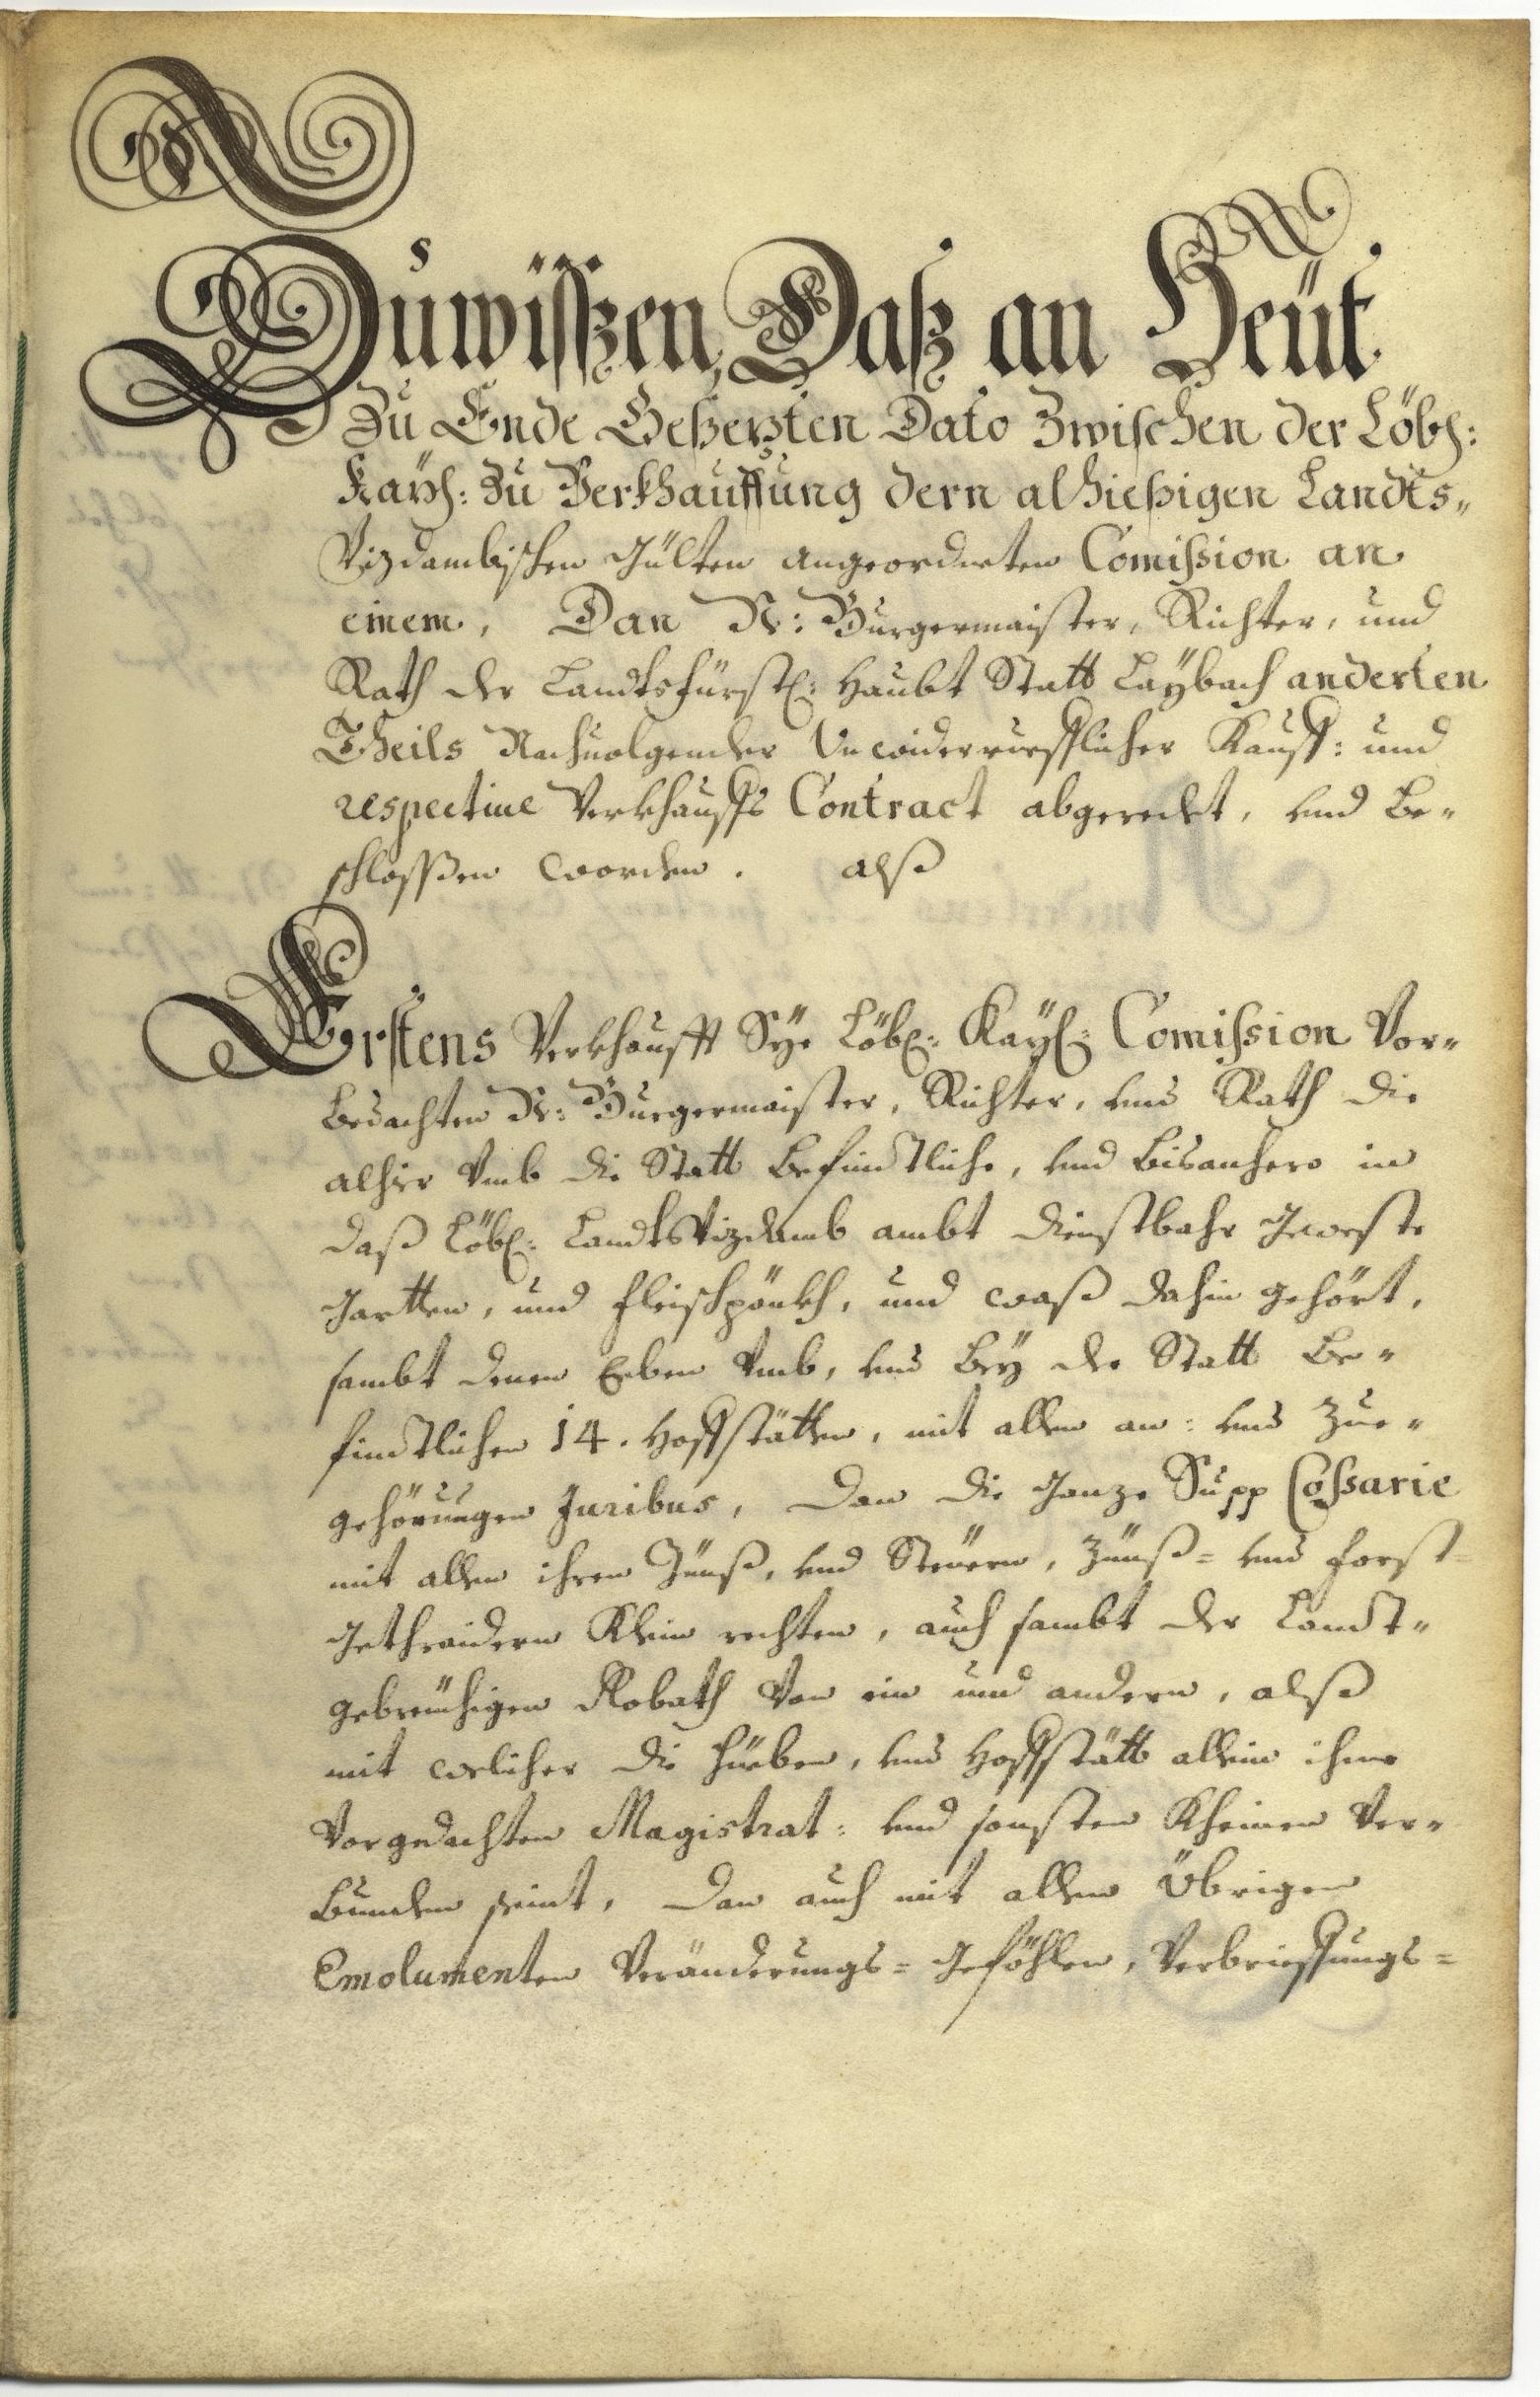 Zuwisszen, Dasz an Heüt
Zu Ende Geseczten Dato Zwischen der Löbl:
Kaÿl: Zu Verkhauffung dern alhiesigen Landts„
Vizdambischen Gülten angeordneten Comission an
einem, Dan N: Burgermaister, Richter, und
Rath der Landtsfürstl: Haubt Statt Laÿbach anderten
Theils Nachuolgender Vnwiderruefflicher Kauff: und
respectiue Verkhauffs Contract abgeredet, vnd be„
schlossßen worden. alß
Erstens Verkhaufft Sÿe Löbl: Kaÿl: Comission Vor„
bedachten N: Burgermaister, Richter, vnd Rath die
alhier Vmb die Statt befindtliche, vnd bisanhero in
daß Löbl: LandtsVizdamb ambt dienstbahr geweste
Gartten, und fleischpönkh, und waß dahin gehört,
sambt denen Eben Vmb, vnd beÿ der Statt be„
findtlichen 14. Hoffstätten, mit allen an: vnd Zue„
gehörungen Juribus, Dan die ganze Supp Cossarie
mit allen ihren Zünß, vnd Steüern, Zünß= vnd forst=
gethraidern Klein rechten, auch sambt der Landt„
gebreuchigen Robath Von ein und andern, alß
mit welicher die hueben, vnd Hoffstätt allein ihme
Vorgedachten Magistrat: vnd sonsten Kheinen Ver„
bunden seint, Dan auch mit allen Übrigen
Emolumenten Veränderungs= geföhlen, Verbrieffungs=